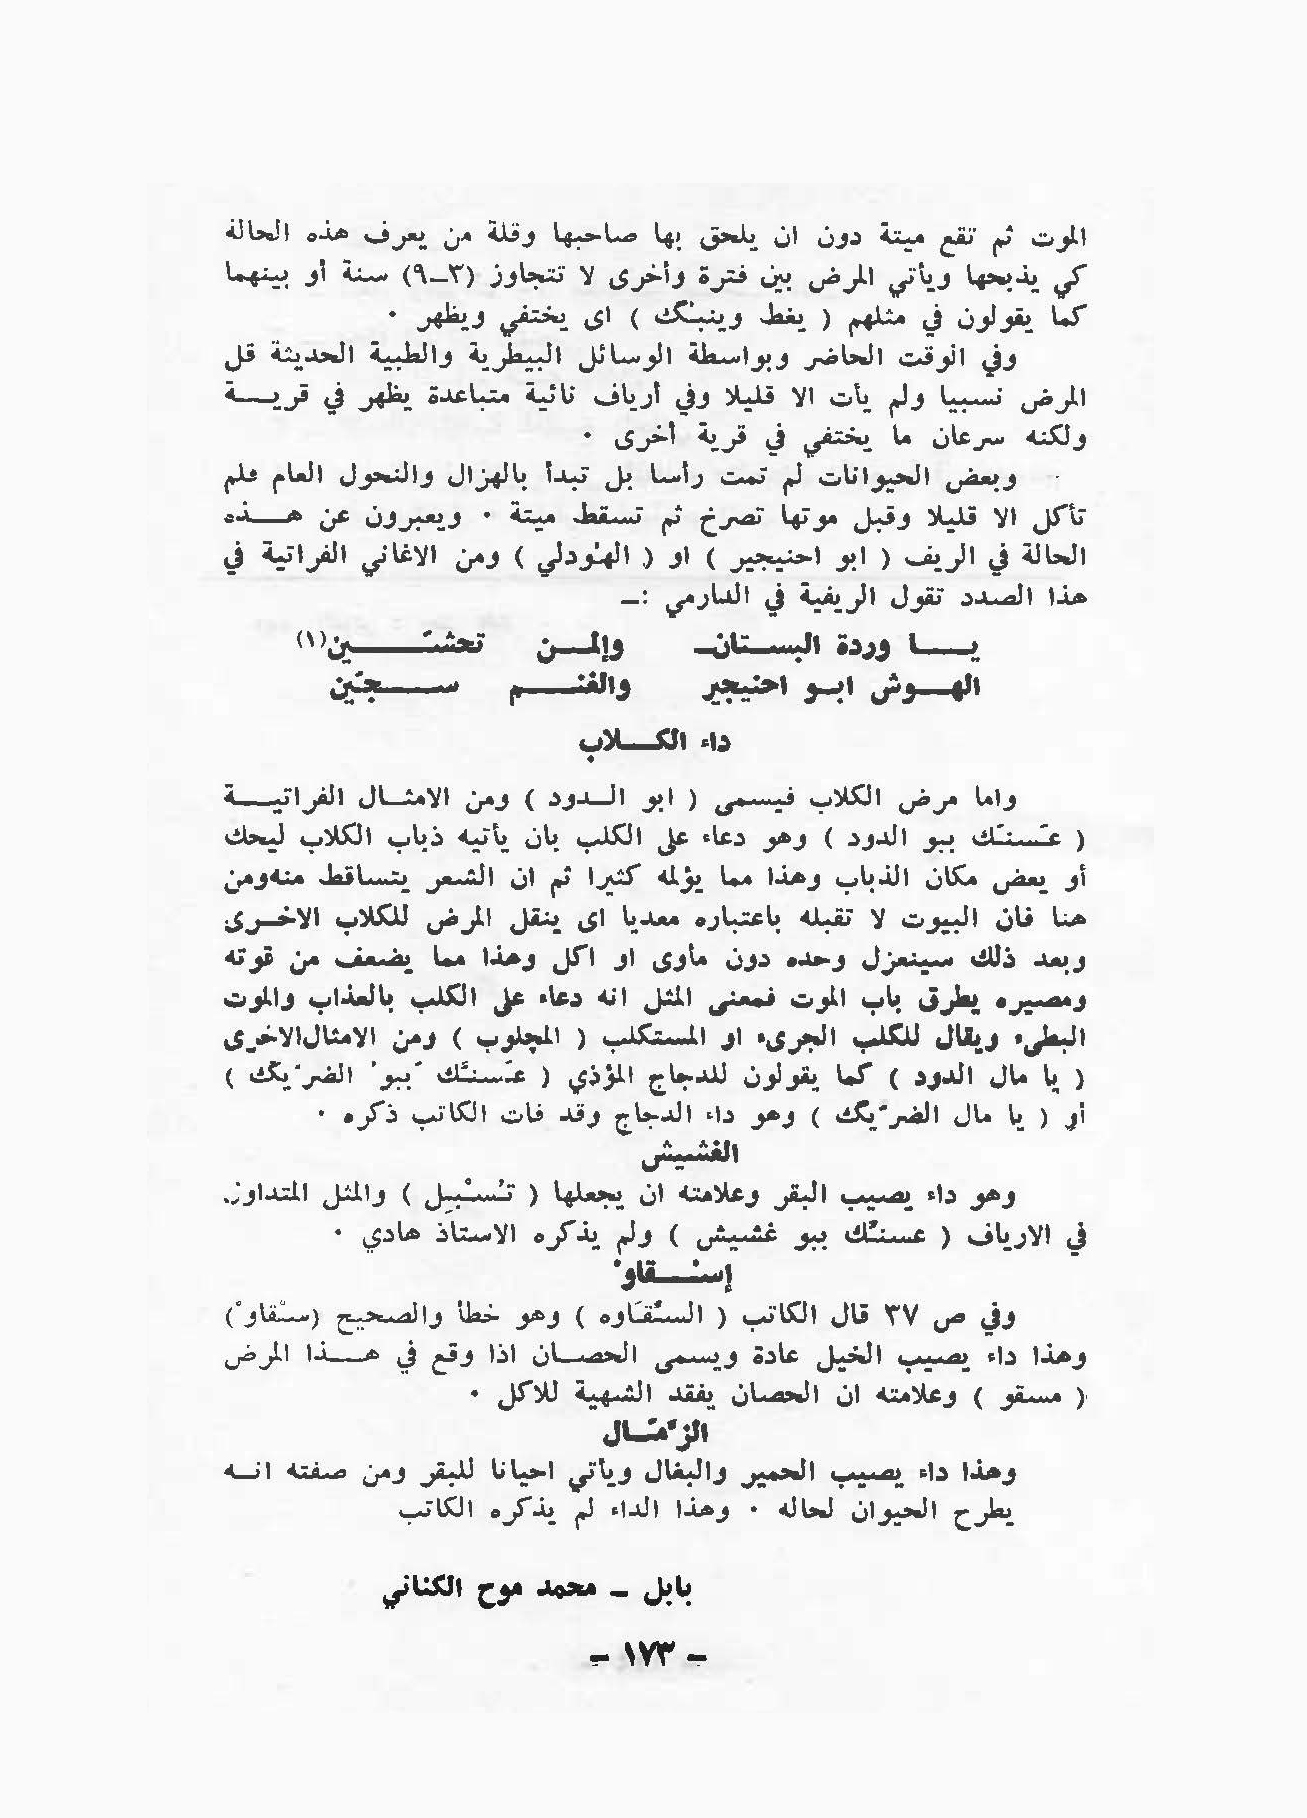 الموت ثم تقع ميتة دون ان يلحق بها صاحبها وقلة من يعرف هذه الحالة
كي يذبحها ويأتي المرض بين فترة وأخرى لا تتجاوز (٣ـ٩) سنة أو بينهما
كما يقولون في مثلهم ( يغط وينبگ ) اى يختفي ويظهر ٠
وفي الوقت الحاضر وبواسطة الوسائل البيطرية والطبية الحديثة قل
المرض نسبيا ولم يأت الا قليلا وفي أرياف نائية متباعدة يظهر في قريـــة
ولكنه سرعان ما يختفي في قرية أخرى ٠
وبعض الحيوانات لم تمت رأسا بل تبدأ بالهزال والنحول العام فلم
تأكل الا قليلا وقبل موتها تصرخ ثم تسقط ميتة ٠ ويعبرون عن هـــذه
الحالة في الريف ( ابو احنيجير ) او ( الهودلي ) ومن الاغاني الفراتية في
هذا الصدد تقول الريفية في الدارمي :ـ
يـــا وردة البستانـ والمـــن تحشّـــين(١)
الهـــوش ابـو احنيجير والغنـــم ســـجّين
داء الكـــلاب
واما مرض الكلاب فيسمى ( ابو الـدود ) ومن الامثـال الفراتيـــة
( عَسنّك ببو الدود ) وهو دعاء على الكلب بان يأتيه ذباب الكلاب ليحك
أو يعض مكان الذباب وهذا مما يؤلمه كثيرا ثم ان الشعر يتساقط منه ومن
هنا فان البيوت لا تقبله باعتباره معديا اى ينقل المرض للكلاب الاخـرى
وبعد ذلك سينعزل وحده دون مأوى او اكل وهذا مما يضعف من قوته
ومصيره يطرق باب الموت فمعنى المثل انه دعاء على الكلب بالعذاب والموت
البطىء ويقال للكلب الجرىء او المستكلب ( المچلوب ) ومن الامثال الاخرى
( يا مال الدود ) كما يقولون للدجاج المؤذي ( عَسنّك ببو الضرَيگ )
أو ( يا مال الضرَيگ ) وهو داء الدجاج وقد فات الكاتب ذكره ٠
الغشيش
وهو داء يصيب البقر وعلامته ان يجعلها ( تُسْبِل ) والمثل المتداول
في الارياف ( عسنّك ببو غشيش ) ولم يذكره الاستاذ هادي ٠
إسْـــقاوْ
وفي ص ٣٧ قال الكاتب ( السقاوه ) وهو خطأ والصحيح (سْقاوْ)
وهذا داء يصيب الخيل عادة ويسمى الحصـان اذا وقع في هـــذا المرض
( مسقو ) وعلامته ان الحصان يفقد الشهية للاكل ٠
الزَمّـال
وهذا داء يصيب الحمير والبغال ويأتي احيانا للبقر ومن صفته انـــه
يطرح الحيوان لحاله ٠ وهذا الداء لم يذكره الكاتب
بابل ـ محمد موح الكناني
ـ ١٧٣ ـ